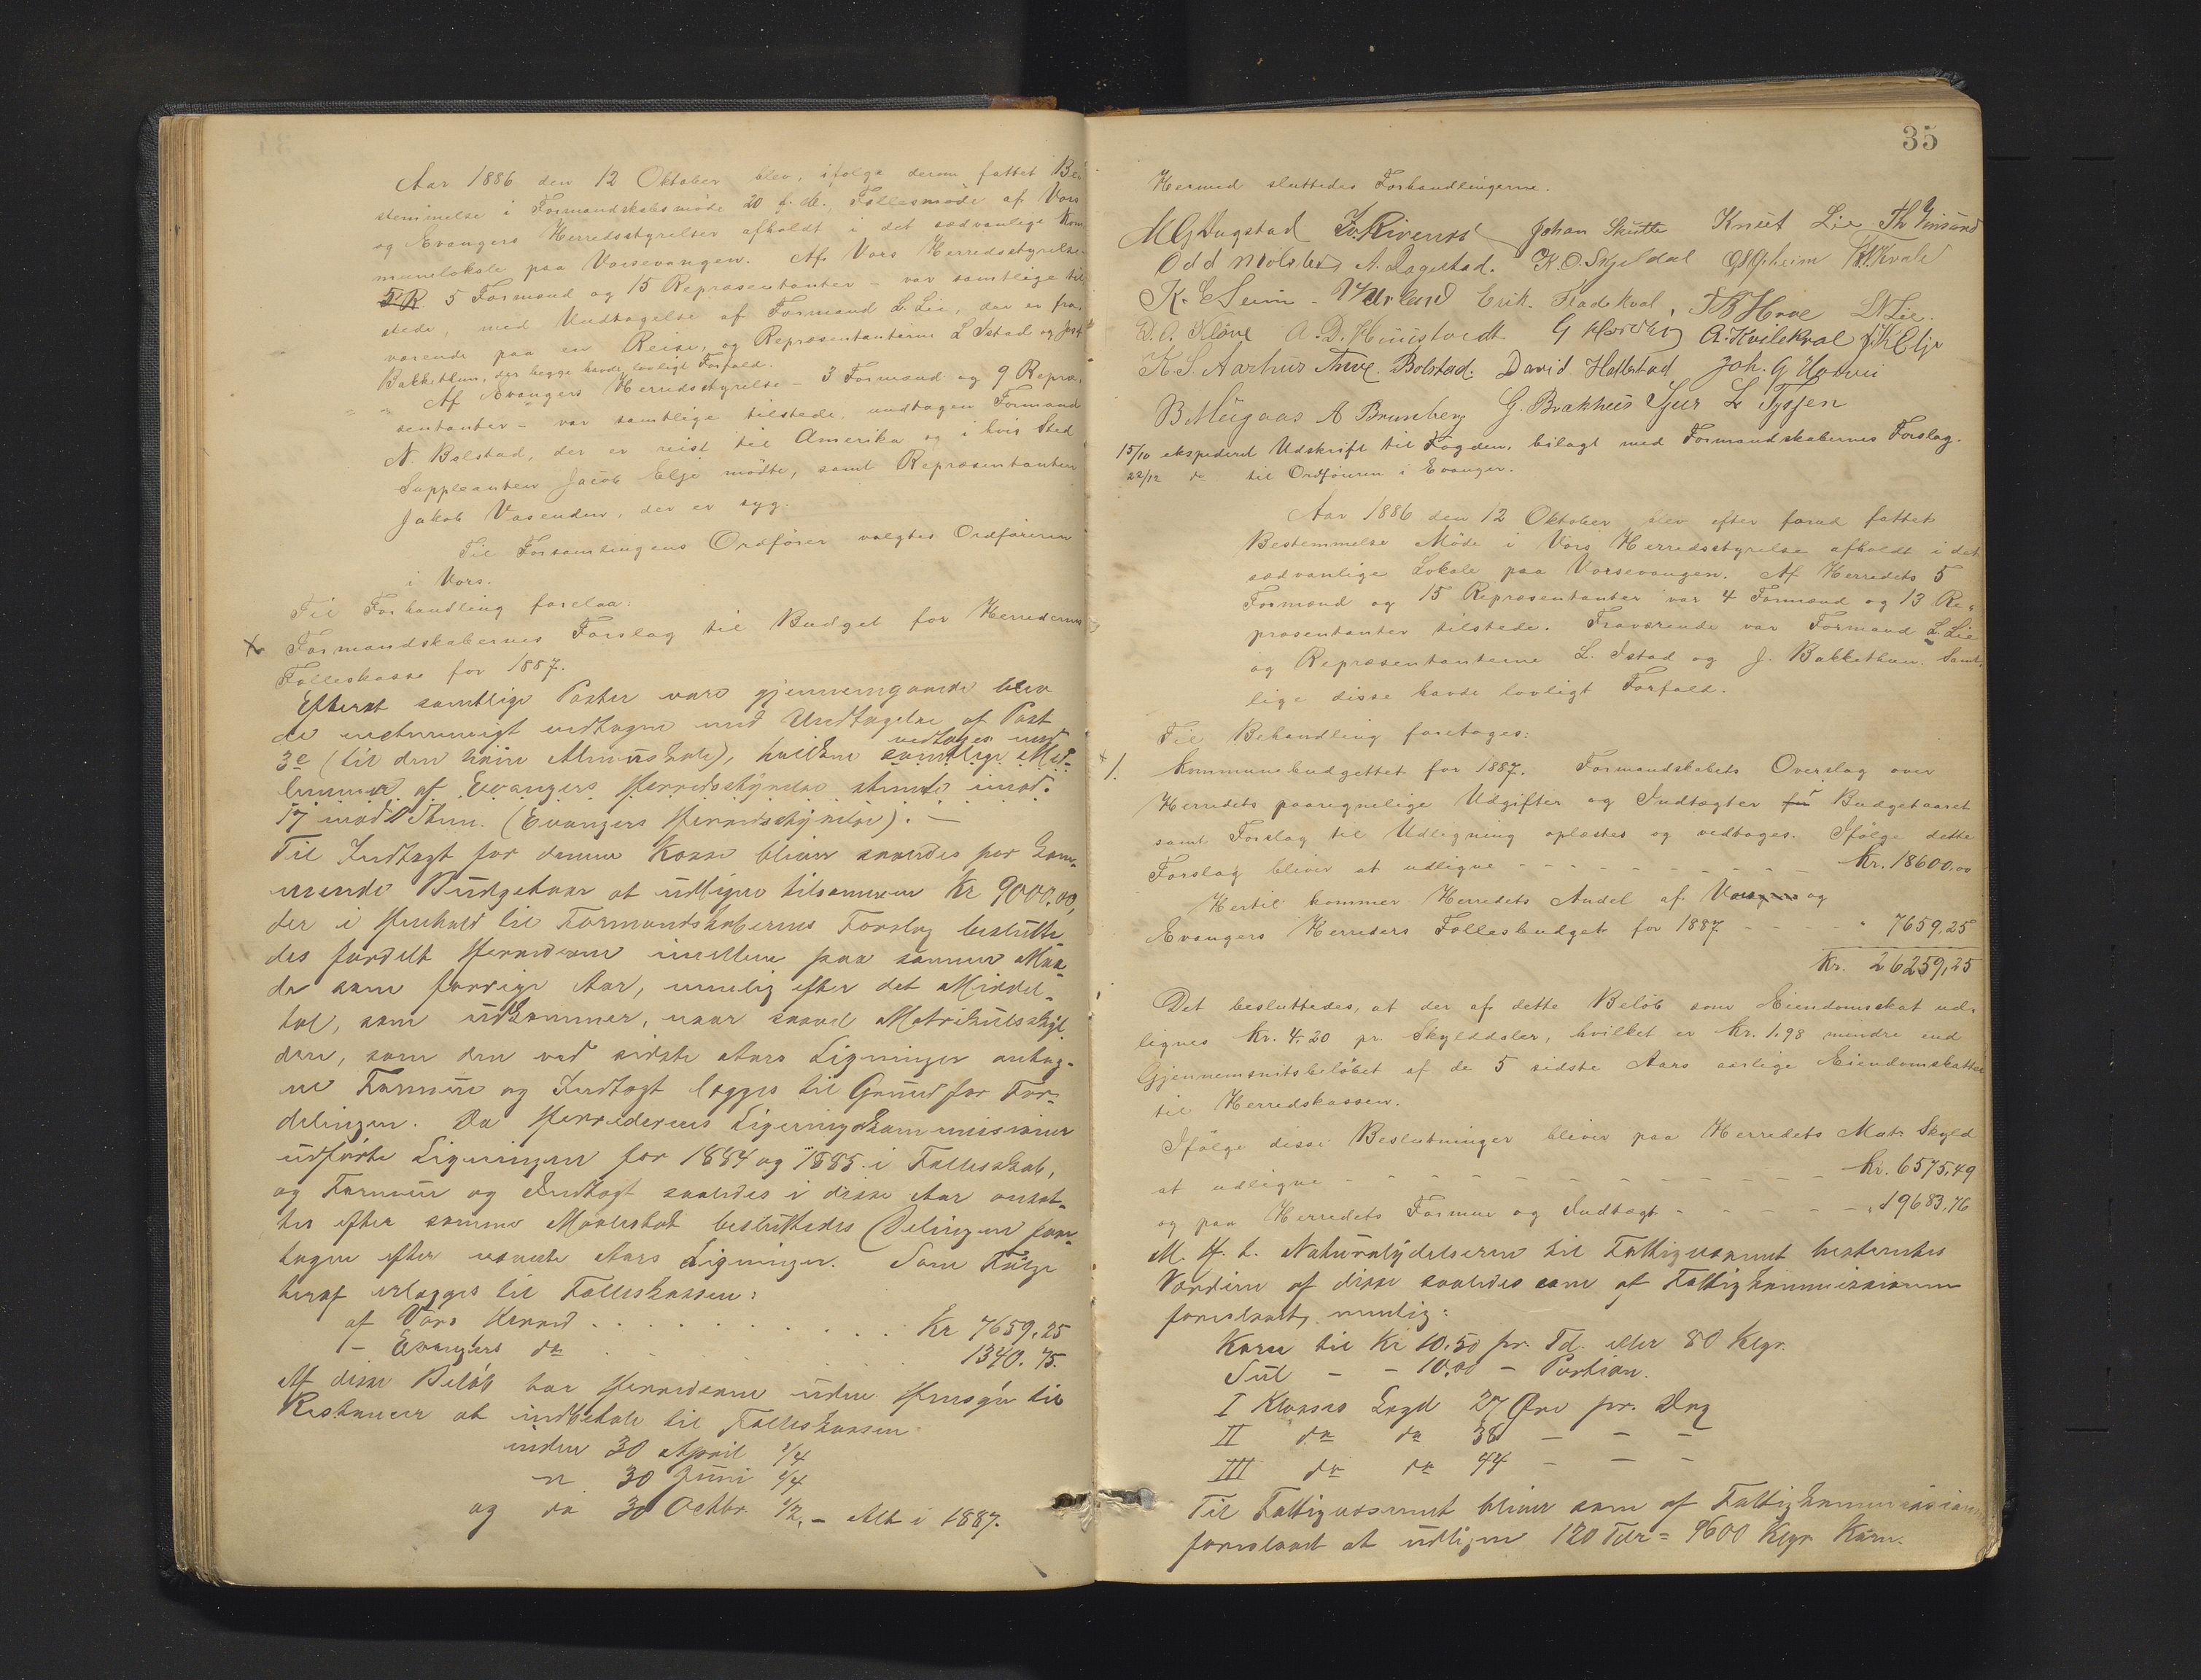 Aar 1886 den 12 Oktober blev, ifølge derom fattet Be-
stemmelse i Formandskabsmøde 20 f. M., Fællesmøde af Vors
og Evangers Herredsstyrelser afholdt i det sædvanlige Kom
munelokale paa Vossevangen. Af Vors Herredsstyrelse
5 Formænd og 15 Repræsentanter – var samtlige til
stede, med Undtagelse af Formand L. Lie, der er fra-
værende paa en Reise, og Repræsentanterne L Istad og
Bakkethun, der begge havde lovligt Forfald.
Af Evangers Herredsstyrelse – 3 Formænd og 9 Repræ-
sentanter – var samtlige tilstede undtagen Formand
N. Bolstad, der er reist til Amerika og i hvis Sted
Suppleanten Jacob Elje mødte, samt Repræsentanten
Jakob Vasenden, der er syg.
Til Forsamlingens Ordfører valgtes Ordføreren
i Vors.
Til Forhandling forelaa:
Formandskabernes Forslag til Budget for Herredernes
Fælleskasse for 1887.
Efterat samtlige Poster vare gjennemgaaede blev
de enstemmigt vedtagne med Undtagelse af Post
3e (til den høiere Almueskole), hvilken vedtoges mod samtlige Med-
lemmer af Evangers Herredsstyrelse stemte imod.
17 mod Stem. (Evangers Herredsstyrelse). –
Til Indtægt for denne Kasse bliver saaledes for kom-
mende Budgetaar at udligne tilsammen Kr 9000,00,
der i Henhold til Formandskabernes Forslag beslutte-
des fordelt Herrederne imellem paa samme Maa-
de som forrige Aar, nemlig efter det Middel-
tal, som udkommer, naar saavel Matrikulsskyl
den, som den ved sidste Aars Ligninger antag-
ne Formue og Indtægt lægges til Grund for For-
delingen. Da Herredernes Ligningskommissioner
udførte Ligningen for 1884 og 1885 i Fællesskab,
og Formue og Indtægt saaledes i disse Aar ansat-
tes efter samme Maalestok besluttedes Delingen fore-
tagen efter nævnte Aars Ligninger. Som Følge
heraf erlægges til Fælleskassen:
af Vors Herred . . . . . . . Kr 7659,25
– Evangers do . . . . . . . 1340.75.
Af disse Beløb har Herrederne uden Hensyn til
Restancer at indbetale til Fælleskassen
inden 30 April 1/4
" 30 Juni 1/4
og do 30 Octbr. 1/2, – Alt i 1887.
35
Hermed sluttedes Forhandlingerne.
Johan Skutle Knut Lie
Odd Mølster A. Dagestad. K. O. Skjeldal
K. E Seim Erik Fladekval L Lie.
A. Kvilekval
K. S. Aarhus Bolstad. David Hallstad Joh. G
A Brunborg G. Brakhus Sjur L Fyssen
15/10 ekspederet Udskrift til Fogden, bilagt med Formandskabernes Forslag.
22/12 do til Ordføreren i Evanger.
Aar 1886 den 12 Oktober blev efter forud fattet
Bestemmelse Møde i Vors Herredsstyrelse afholdt i det
sædvanlige Lokale paa Vossevangen. Af Herredets 5
Formænd og 15 Repræsentanter var 4 Formænd og 13 Re-
præsentanter tilstede. Fraværende var Formand L. Lie
og Repræsentanterne L. Istad og J. Bakkethun. Samt-
lige disse havde lovligt Forfald.
Til Behandling foretoges:
1. Kommunebudgettet for 1887. Formandskabets Overslag over
Herredets paaregnelige Udgifter og Indtægter for Budgetaaret
samt Forslag til Udligning oplæstes og vedtoges. Ifølge dette
Forslag bliver at udligne – – – Kr. 18600,00
Hertil kommer Herredets Andel af Vors og
Evangers Herreders Fællesbudget for 1887 – – – " 7659,25
Kr. 26259,25
Det besluttedes, at der af dette Beløb som Eiendomsskat ud-
lignes Kr. 4.20 pr. Skylddaler, hvilket er Kr. 1.98 mindre end
Gjennemsnitsbeløbet af de 5 sidste Aars aarlige Eiendomsskatter
til Herredskassen.
Ifølge disse Beslutninger bliver paa Herredets Matr. Skyld
at udligne – – – Kr. 6575,49
og paa Herredets Formue og Indtægt – – – " 19683,76
M. H. t. Naturalydelserne til Fattigvæsenet bestemtes
Værdien af disse saaledes som af Fattigkommissionen
foreslaaet, nemlig:
Korn til Kr 10,50 pr. Td. eller 80 Klgr.
Sul – – 10,00 – Portion.
I Klasses Lægd 27 Øre pr. Dag
II do do 38 – – –
III do do 44 – – –
Til Fattigvæsenet bliver som af Fattigkommissionen
foreslaaet at udligne 120 Tdr = 9600 Klgr Korn.